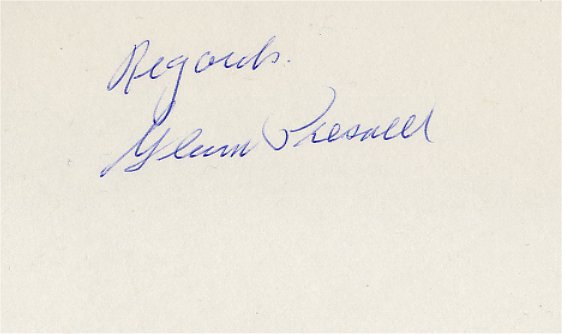 Regards.
Glenn Presnell